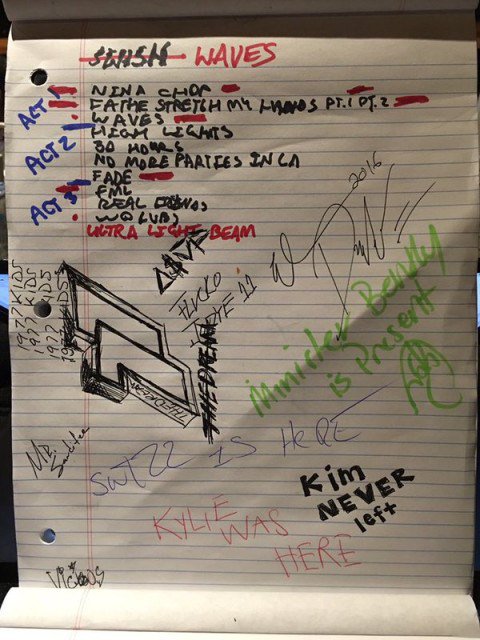 SWISH WAVES
ACT 1
NINA CHOP
FATHE STRETCH MY HANDS PT.1 PT.2
WAVES
ACT 2
HIGH LIGHTS
30 HOURS
NO MORE PARTIES IN LA
FADE
ACT 3
FML
REAL FRIENDS
WOLVES
ULTRA LIGHT BEAM
2016
1977 KIDS
1977 KIDS
1977 KIDS
THEDREAM
THEDREAM
Minister Bently
is Present
SWIZZ IS HERE
Kim
NEVER
left
KYLIE
WAS
HERE
MR.
Vicious